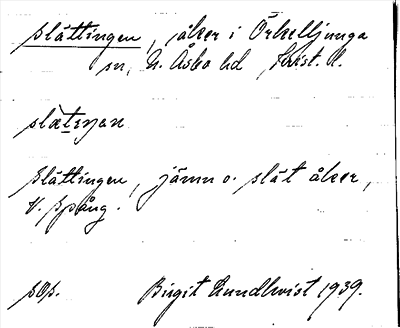 Slättingen, åker i Örkelljunga
sn, N. Åsbo hd, Krist. l.
slætɪŋən
Slättingen, jämn o. slät åker,
V. Spång.
søs.      Birgit Lundkvist 1939.